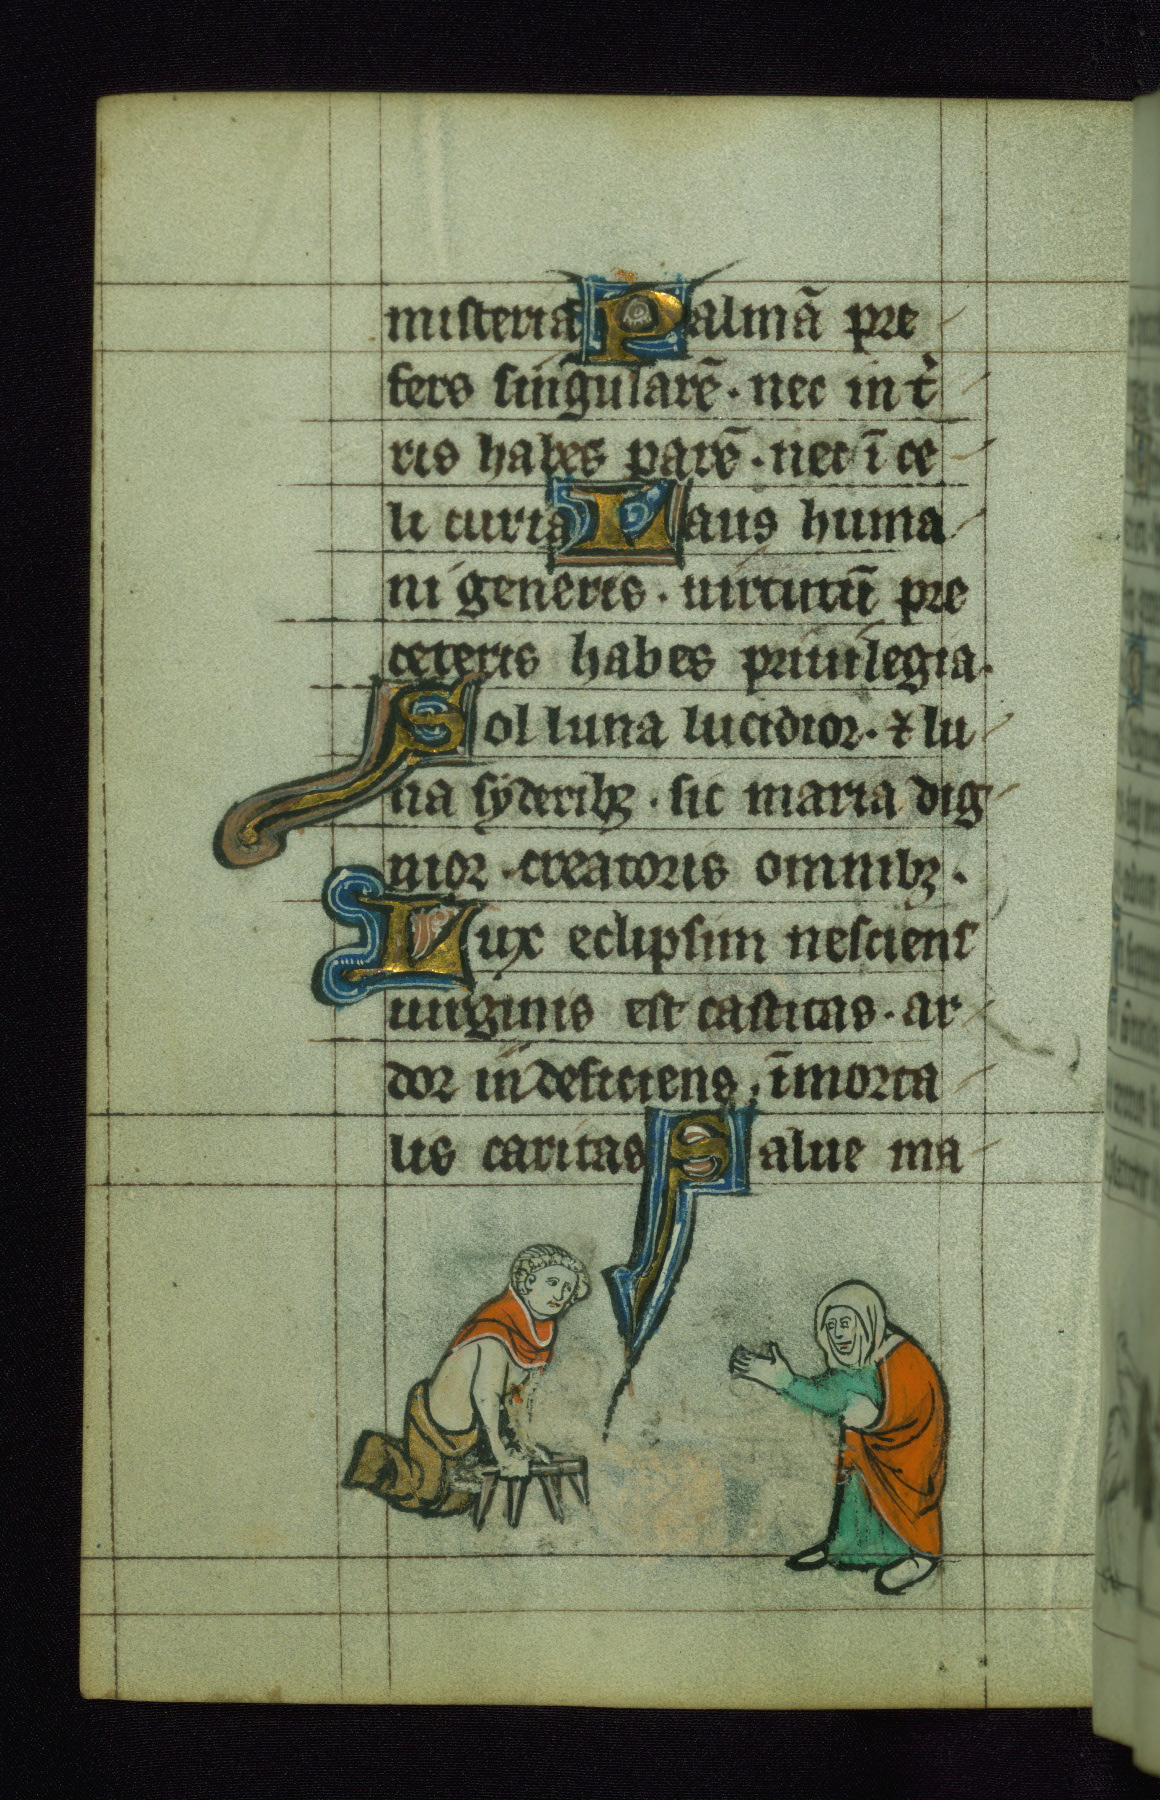 misteria Palmā pre
fers singularē · nec in t̾
ris habes parē · nec ī ce
li curia Laus huma
ni generis · uirtutū pre
ceteris habes priuilegia ·
Sol luna lucidior · ⁊ lu
na syderibꝫ · sic maria dig
nior · creatoris omnibꝫ ·
Lux eclipsim nesciens
uirginis est castitas · ar
dor indeficiens · īmorta
lis caritas Salue ma